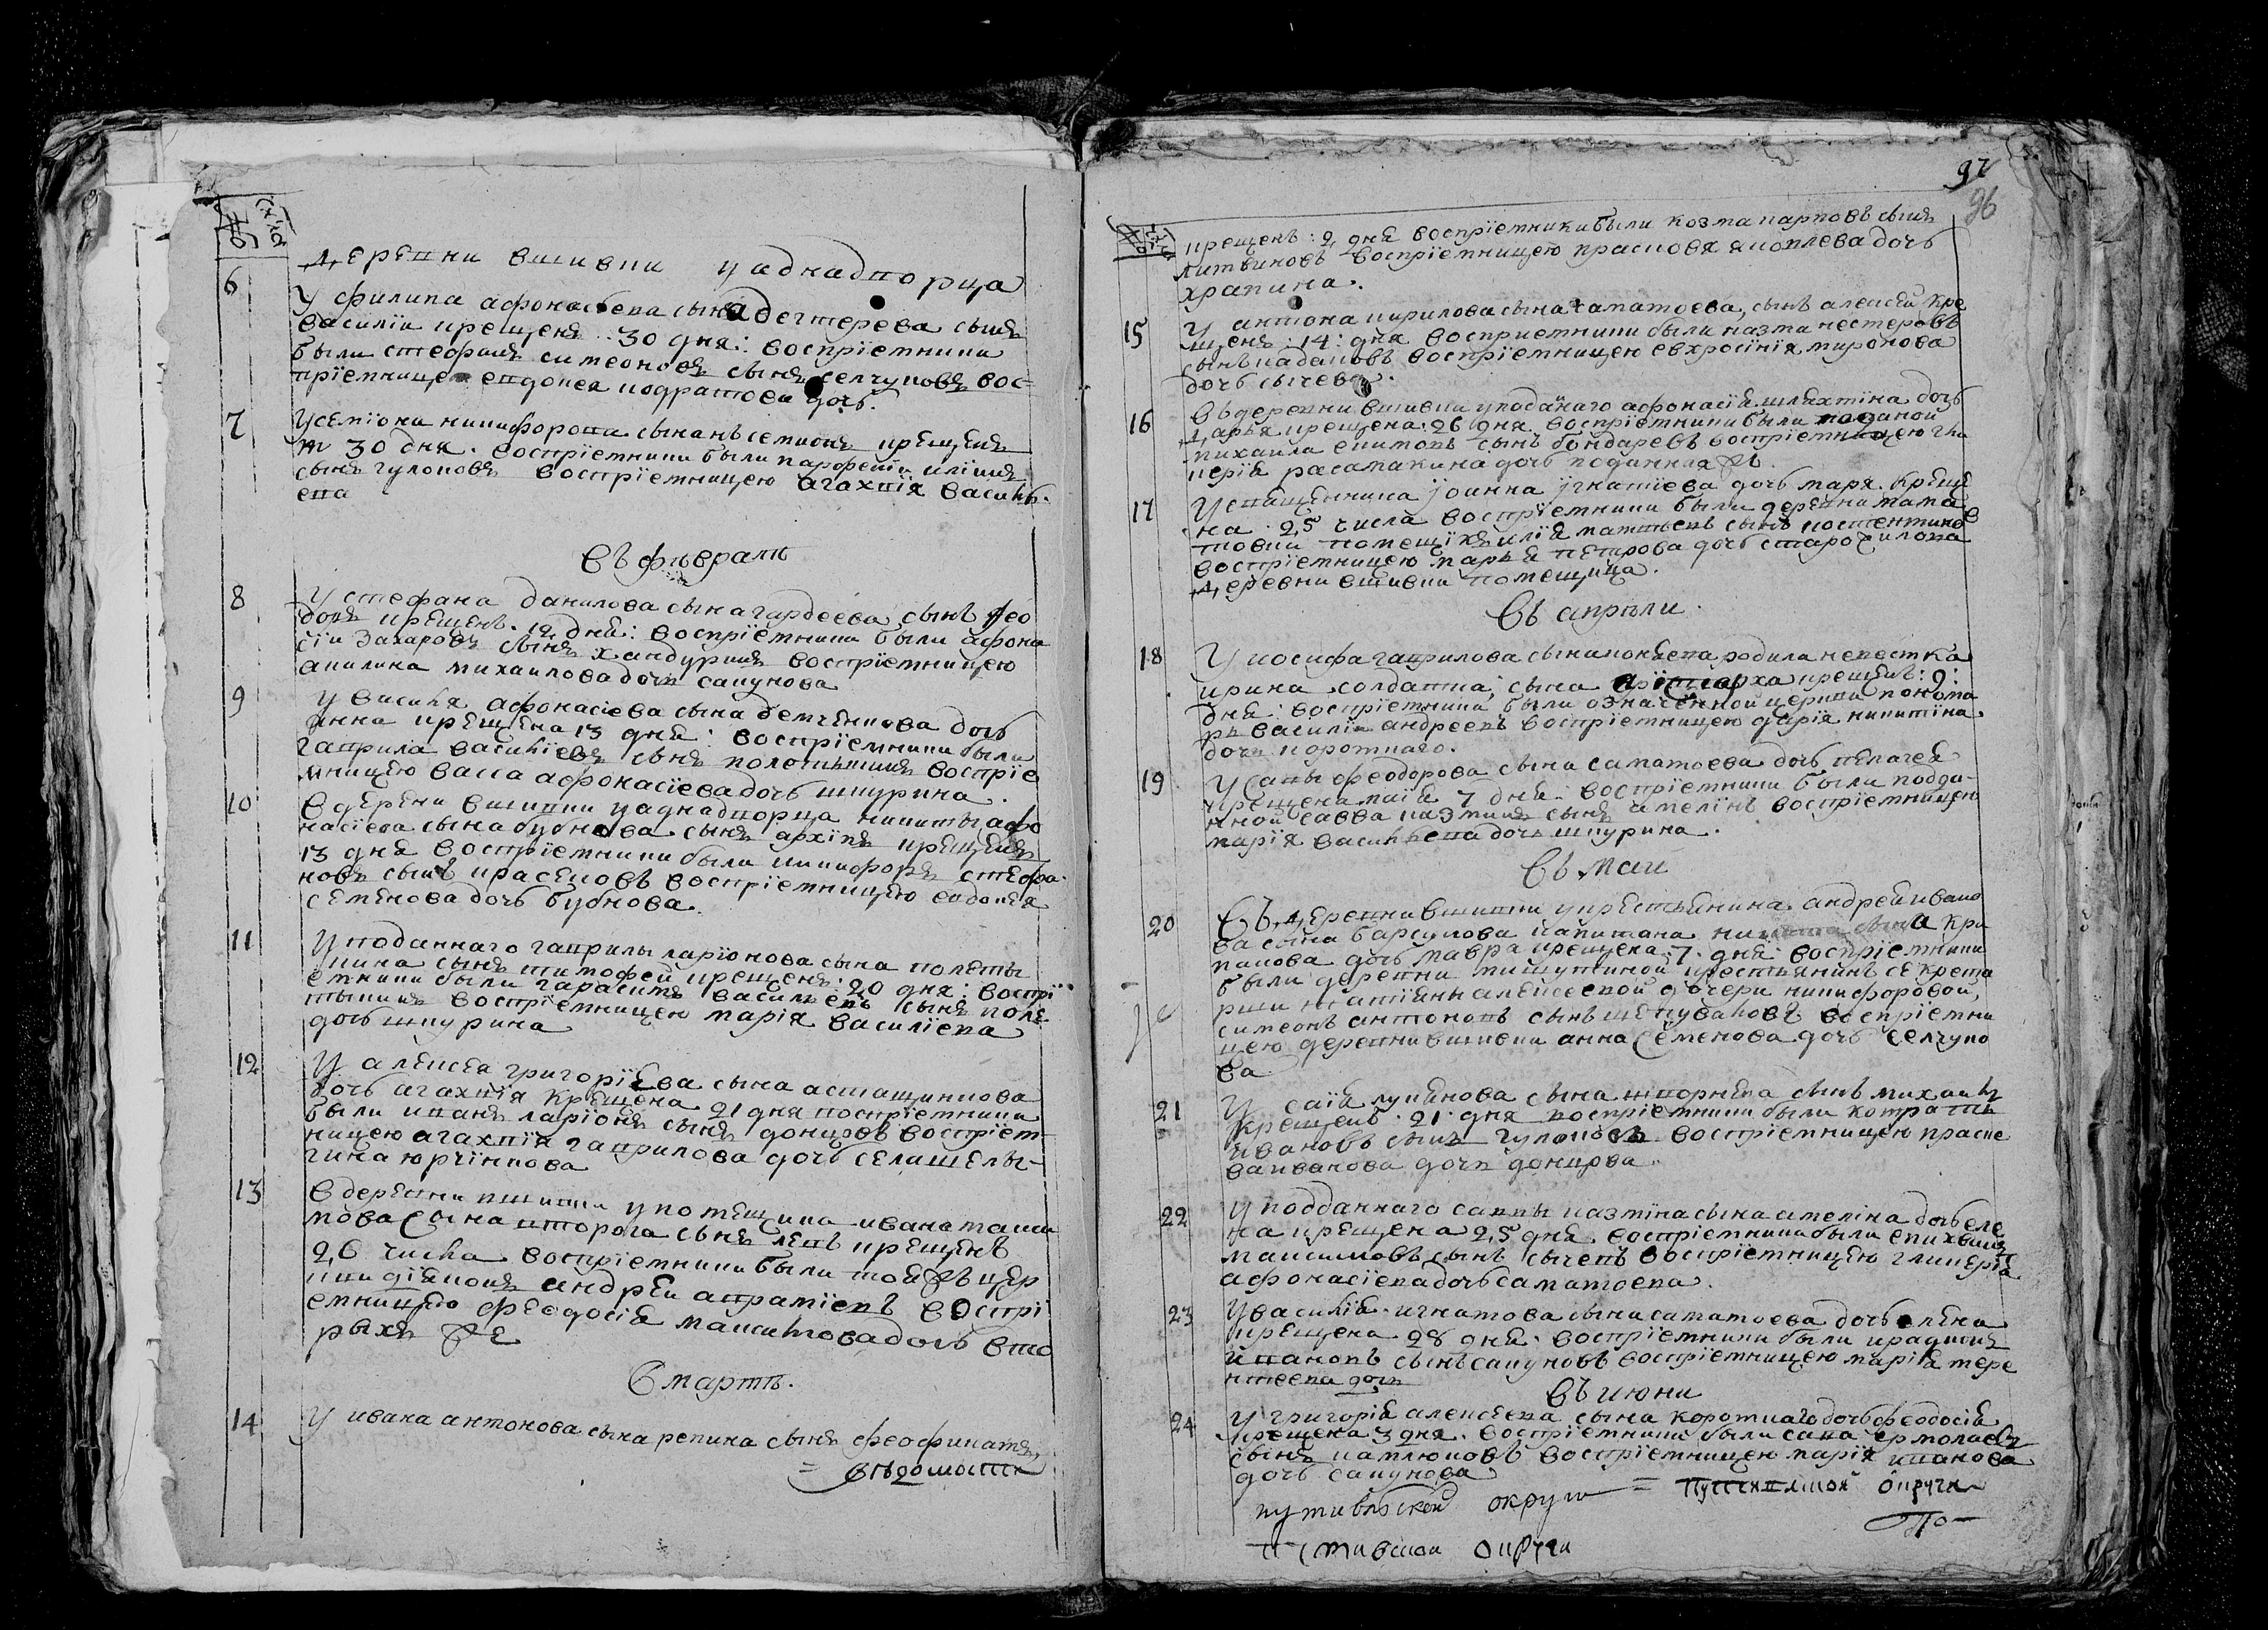 деревни вшивки у аднадворца
6 У филипа афонасьева сына дегтерева сынъ
василiи крещенъ 30 дня: воспрiемники
были стефанъ симеоновъ сынъ селчуковъ вос-
прiемницею евдокея кодратова дочь.
7 У семiона никифорова сына нъ семионъ крещенъ
30 дня. воспрiемники были парфенiи илiинъ
сынъ гулоковъ воспрiемницею агахвiя василь-
ева
въ феврале
8 У стефана данилова сына гардеева сынъ фео
доръ крещенъ. 12 дня: воспрiемники были афона
сiи захаровъ сынъ хандуринъ воспрiемницею
акилина михаилова дочь сапунова
9 У василiя афонасiева сына демченкова дочь
анна крещена 13 дня: воспрiемники были
гаврила василiевъ сынъ полетыкинъ воспрiе
мницею васса афонасiева дочь шкурина.
10 в дерени вшивки у аднадворца никиты афо
насiева сына бубнова сынъ архiпъ крещенъ
13 дня воспрiемники были никифоръ стефа-
новъ сынъ красеновъ воспрiемницею евдокея
семенова дочь бубнова.
11 У поданнаго гаврилы ларiонова сына полеты
кина сынъ тимофеи крещенъ: 20 дня: воспрi
емники были гарасимъ васильевъ сынъ поле
тыкинъ воспрiемницею марiя василiева
дочь шкурина
12 У алексея григорiева сына асташинкова
дочь агахвiя крещена 21 дня воспрiемники
были иванъ ларiонъ сынъ донцовъ воспрiем
ницею агахвiя гаврилова дочь
юрчiнкова
13 в деревни вшивки у помещика ивана макси
мова сына второга сынъ левъ крещенъ
26 числа воспрiемники были той же цер
кви дiяконъ андреи аврамiевъ воспрi
емницею феодосiя максимова дочь вто
рыхъ же
в марте.
14 У ивана антонова сына репина сынъ феофилатъ,
= ведомости
97
96
крещенъ: 2 дня воспрiемники были козма карповъ сынъ
литвиновъ воспрiемницею прасковя яковлева дочь
храпина.
15 У антона кирилова сына саматоева, сынъ алексей кре
щенъ: 14: дня восприемники были казма нестеровъ
сынъ кадаковъ воспрiемницею евхросiнiя миронова
дочь сычева.
16 въ деревни вшивки у поданаго афонасiя шляхтiна дочь
дарья крещена: 26 дня. воспрiемники были поданой
михаила екимовъ сынъ бондаревъ воспрiемницею гли
керiя расамакина дочь поданная же
17 У священника iоанна iгнатiева дочь маря. креще
на. 25 числа воспрiемники были деревни
помещiкъ илiя матвеевъ сынъ костентинов
воспрiемницею марья петрова дочь старосилова
деревни вшивки помещица.
въ апрели.
18 У иосифа гаврилова сына родила невестка
ирина солдатка; сына арiстарха крещенъ: 9:
дня: воспрiемники были означенной церкви понома
рь василiи андреевъ воспрiемницею дарiя никитiна
дочь короткаго.
19 У савы феодорова сына саматоева дочь пелагея
крещена 7 дня: воспрiемники были подда-
нной савва казминъ сынъ амелiнъ воспрiемницею
марiя васильева дочь шкурина.
въ маи
20 въ деревни вшивки у крестьянина андрея ивано
ва сына барсукова капитана сына кри
вкова дочь мавра крещена. 7. дня: воспрiемники
были деревни мишуткиной крестьянинъ секрета
рши татiяны алексеевой дочери никифоровой,
симеонъ антоновъ сынъ воспрiемни
цею деревни вшивки анна семенова дочь селчуко
ва
21 У саiя лукiянова сына сынъ михаилъ
крещенъ. 21 дня воспрiемники были
ивановъ сынъ гулоковъ воспрiемницею праско
ва иванова дочь донцова.
22 У подданнаго саввы казмiна сына амелiна дочь еле
на крещена 25 дня. воспрiемники были
максимовъ сынъ сычевъ воспрiемницею гликерiя
афонасiева дочь саматоева.
23 У василiя игнатова сына саматоева дочь елена
крещена 28 дня: воспрiемники были
ивановъ сынъ сапуновъ воспрiемницею марiя тере
нтеева дочь
въ июни
24 У григорiя алексеева сына короткаго дочь феодосiя
крещена 3 дня. воспрiемники были сава ермолаевъ
сынъ катюковъ воспрiемницею марiя иванова
дочь сапунова
путивльской округи = Путивлской округи
путивской округи